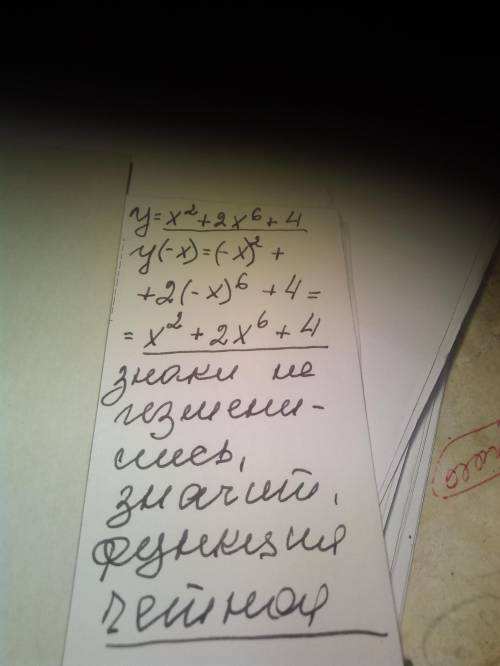 y=x²+2x⁶+4
y(-x)=(-x)²+
+2(-x)⁶+4=
=x²+2x⁶+4
знаки не
измени-
лись,
значит,
функция
четная